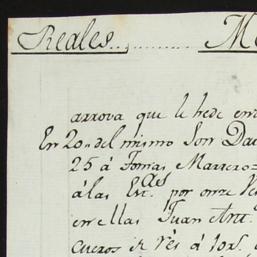 Reales
arrova que le hede
En 20,, del mismo Son
25 á Tomas Marrero
á las Est.as por onze
en ellas Juan Ant.
cueros